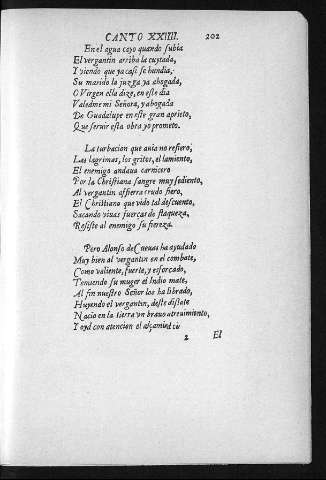 CANTO XXIIII. 202
En el agua cayo quando subia
El vergantin arriba la cuytada,
Y viendo que ya casi se hundia,
Su marido la juzga ya ahogada,
O Virgen ella dize, en este dia
Valedme mi Señora, y abogada
De Guadalupe en este gran aprieto,
Que seruir esta obra yo prometo.
La turbacion que auia no refiero,
Las lagrimas, los gritos, el lamiento,
El enemigo andaua carnicero
Por la Christiana sangre muy sediento,
Al vergantin afferra crudo fiero,
El Christiano que vido tal descuento,
Sacando viuas fuerças de flaqueza,
Resiste al enemigo su fiereza.
Pero Alonso de Cueuas ha ayudado
Muy bien al vergantin en el combate,
Como valiente, fuerte, y esforçado,
Teniendo su muger el Indio mate,
Al fin nuestro Señor los ha librado,
Huyendo el vergantin, deste distate
Nacio en la tierra vn brauo atreuimiento,
Y oyd con atencion el alçamiẽto
2 El